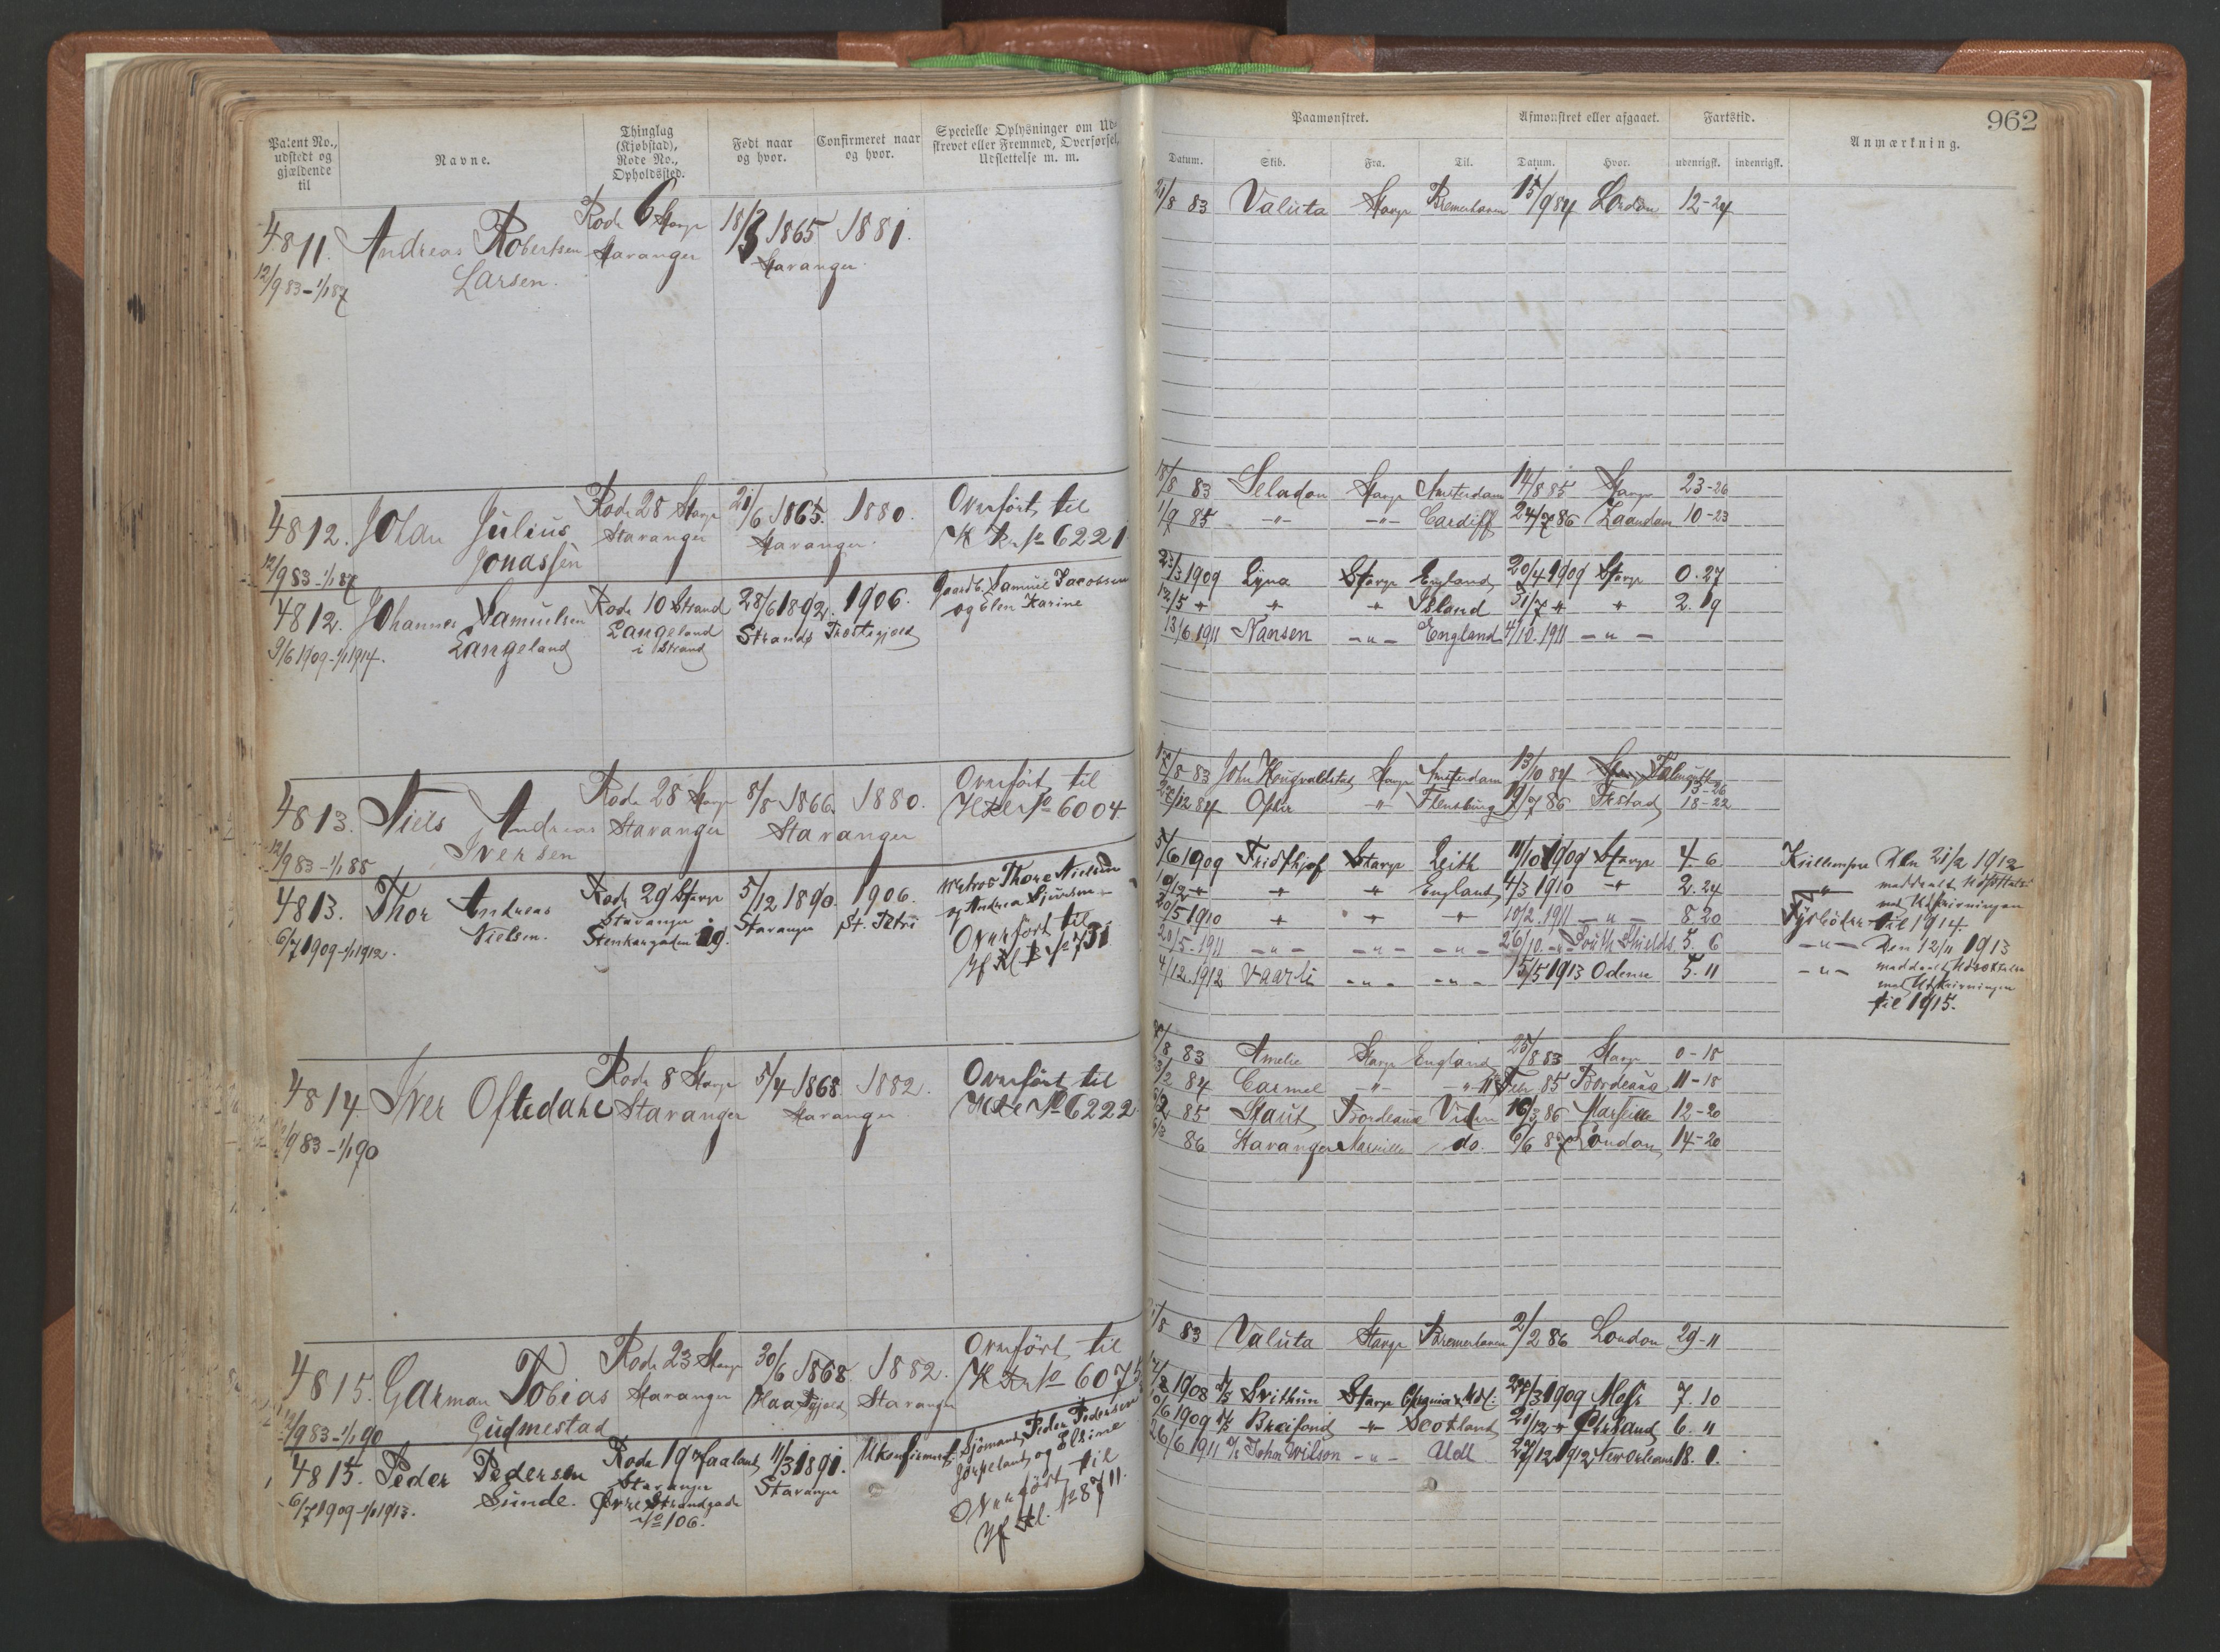 962
Patent No., udstedt og gjældende til
Navne.
Thinglag (Kjøbstad), Rode No., Opholdssted.
Født naar og hvor.
Confirmeret naar og hvor.
Specielle Oplysninger om Udskrevet eller Fremmed, Overførsel, Udslettelse m. m.
Paamønstret.
Afmønstret eller afgaaet.
Fartstid.
Anmærkning.
Datum. Skib. Fra. Til. Datum. Hvor. udenrigsk. indenrigsk.
4811. Andreas Robertsen Rode 6 Stavgr 18/3 1865 1881.
Larsen. Stavanger Stavanger.
12/9 83 - 1/1 87
21/8 83 Valuta Stavgr Bremerhaven 15/9 84 London 12-24
4812. Johan Julius Rode 28 Stavgr 21/6 1865. 1880. Overført til
Jonassen Stavanger Stavanger. No 6221
12/9 83 - 1/1 87
18/8 83 Seladon Stavgr Amsterdam 14/8 85 Stavgr 23-26
1/9 85 -"- -"- Cardiff 24/7 86 Zaandam 10-23
4812. Johannes Samuelsen Rode 10 Strand 28/6 1892. 1906. Gaardb. Samuel Jacobsen
Langeland Langeland i Strand Strands og Elen Karine
9/6 1909 - 1/1 1914.
23/3 1909 Lyna Stavgr England 20/4 1909 Stavgr 0.27
12/5 " " " Island 31/7 " " 2.19
13/6 1911 Nansen -"- England 4/10. 1911 -"-
4813. Niels Andreas Rode 28 Stavgr 8/8 1866. 1880. Overført til
Iversen Stavanger Stavanger No 6004
12/9 83 - 1/1 88
83 John Stavgr Amsterdam 13/10 84 Falmouth 13-26
22/12 84 " Flensburg 19/7 86 18-22
4813. Thor Andreas Rode 29 Stavgr 5/12 1890. 1906. Matros Thore Nielsen
Nielsen. Stavanger Stavanger St. Petri og Andrea
Stenkargaden 29. Overført til
6/7 1909 - 1/1 1912. No 731
5/6 1909 Fridthjof Stavgr Leith 11/10 1909 Stavgr 4.6
10/12 " " " England 4/3 1910 " 2.24
20/5 1910 " " " 10/2. 1911 -"- 8.20
20/5. 1911 -"- -"- -"- 26/10. -"- South Shields. 5. 6
4/12. 1912 Vaarli -"- -"- 15/5 1913 Odense 5.11
Den 21/2 1912
meddelt Udsættelse
med Udskrivningen
Fyrbøder til 1914.
-"- Den 12/11 1913
-"- meddelt Udsættelse
med Udskrivningen
til 1915.
4814 Iver Oftedahl Rode 8 Stavgr 5/4 1868. 1882. Overført til
Stavanger Stavanger No 6222
12/9 83 - 1/1 90
83 Amelie Stavgr England 25/8 83 Stavgr 0-18
84 Carmel -"- -"- Febr. 85 Bordeaux 11-18
85 Staut Bordeaux Viden 86 Marseille 12-20
86 Stavanger Marseille do. 6/6 87 London 14-20
4815. Garman Tobias Rode 23 Stavgr 30/6 1868. 1882. Overført til
Gudmestad Stavanger Haa Stavanger No 6075
12/9 83 - 1/1 90
21/8 83 Valuta Stavgr Bremerhaven 2/2 86 London 29-11
4815. Peder Pedersen Rode 19 Haaland 11/3 1891. Ukonfirmert. Sjømand Peder Pedersen
Sunde. Stavanger Stavanger Jørpeland og Elsine
Øvre Strandgade Overført til
No 106. No 8711.
6/7 1909 - 1/1 1913.
1908 Svithun Stavgr 27/3 1909 Moss 7.10
1909 Breifond " Scotland 21/12 " 6.11
26/6. 1911 John Wilson -"- Udl 27/12 1912 New Orleans 18. 1.